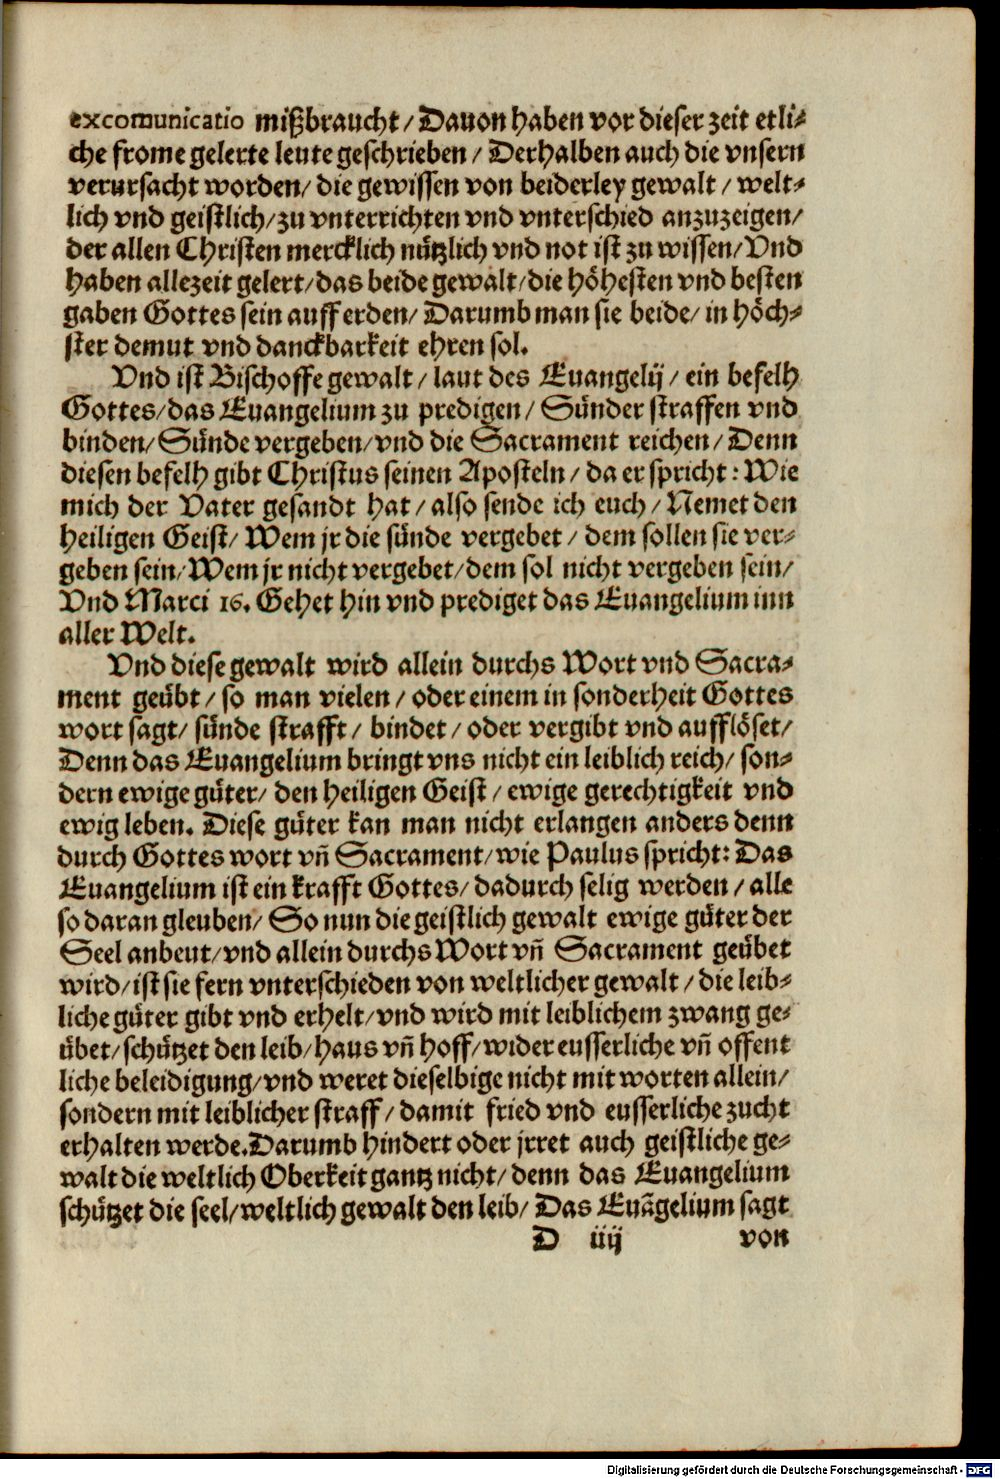 excomunicatio mißbraucht/ Dauon haben vor dieser zeit etli-
che frome gelerte leute geschrieben/ Derhalben auch die vnsern
verursacht worden/ die gewissen von beiderley gewalt/ welt-
lich vnd geistlich/ zu vnterrichten vnd vnterschied anzuzeigen/
der allen Christen mercklich nützlich vnd not ist zu wissen/ Vnd
haben allezeit gelert/ das beide gewalt/ die höhesten vnd besten
gaben Gottes sein auff erden/ Darumb man sie beide/ in höch-
ster demut vnd danckbarkeit ehren sol.
Vnd ist Bischoffe gewalt/ laut des Euangelij/ ein befelh
Gottes/ das Euangelium zu predigen/ Sünder straffen vnd
binden/ Sünde vergeben/ vnd die Sacrament reichen/ Denn
diesen befelh gibt Christus seinen Aposteln/ da er spricht: Wie
mich der Vater gesandt hat/ also sende ich euch/ Nemet den
heiligen Geist/ Wem jr die sünde vergebet/ dem sollen sie ver-
geben sein/ Wem jr nicht vergebet/ dem sol nicht vergeben sein/
Vnd Marci 16. Gehet hin vnd prediget das Euangelium inn
aller Welt.
Vnd diese gewalt wird allein durchs Wort vnd Sacra-
ment geübt/ so man vielen/ oder einem in sonderheit Gottes
wort sagt/ sünde strafft/ bindet/ oder vergibt vnd aufflöset/
Denn das Euangelium bringt vns nicht ein leiblich reich/ son-
dern ewige güter/ den heiligen Geist/ ewige gerechtigkeit vnd
ewig leben. Diese güter kan man nicht erlangen anders denn
durch Gottes wort vñ Sacrament/ wie Paulus spricht: Das
Euangelium ist ein krafft Gottes/ dadurch selig werden/ alle
so daran gleuben/ So nun die geistlich gewalt ewige güter der
Seel anbeut/ vnd allein durchs Wort vñ Sacrament geübet
wird/ ist sie fern vnterschieden von weltlicher gewalt/ die leib-
liche güter gibt vnd erhelt/ vnd wird mit leiblichem zwang ge-
übet/ schützet den leib/ haus vñ hoff/ wider eusserliche vñ offent
liche beleidigung/ vnd weret dieselbige nicht mit worten allein/
sondern mit leiblicher straff/ damit fried vnd eusserliche zucht
erhalten werde. Darumb hindert oder jrret auch geistliche ge-
walt die weltlich Oberkeit gantz nicht/ denn das Euangelium
schützet die seel/ weltlich gewalt den leib/ Das Euãgelium sagt
D iiij von
Digitalisierung gefördert durch die Deutsche Forschungsgemeinschaft - DFG